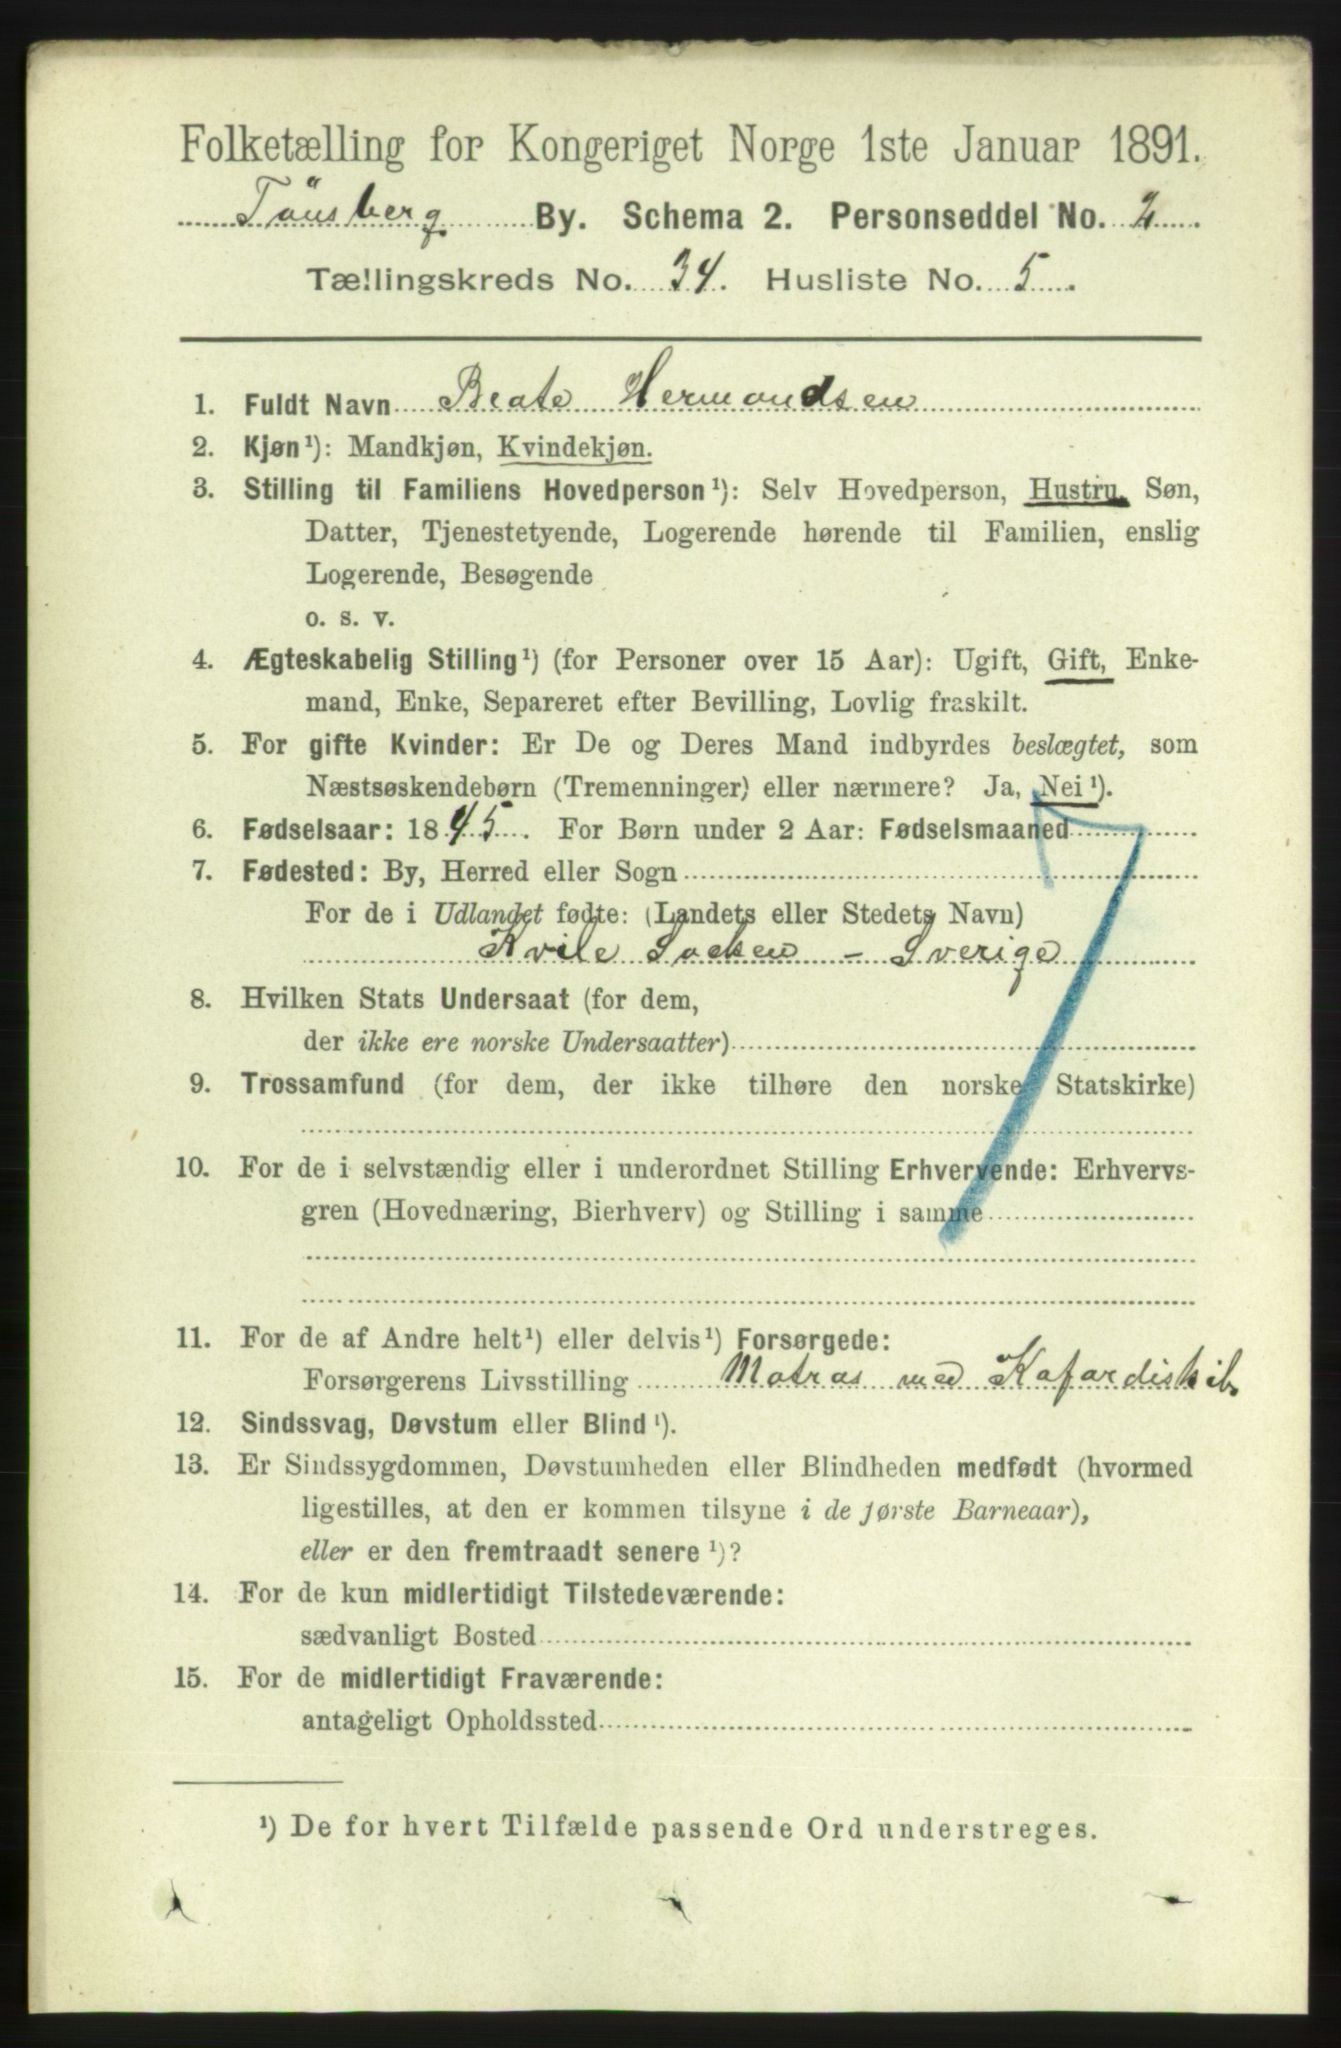 Folketælling for Kongeriget Norge 1ste Januar 1891.
Tönsberg By. Schema 2. Personseddel No. 2
Tællingskreds No. 34. Husliste No. 5
1. Fuldt Navn Beate Hermandsen
2. Kjøn¹): Mandkjøn, Kvindekjøn.
3. Stilling til Familiens Hovedperson¹): Selv Hovedperson, Hustru, Søn,
Datter, Tjenestetyende, Logerende hørende til Familien, enslig
Logerende, Besøgende
o. s. v.
4. Ægteskabelig Stilling¹) (for Personer over 15 Aar): Ugift, Gift, Enke-
mand, Enke, Separeret efter Bevilling, Lovlig fraskilt.
5. For gifte Kvinder: Er De og Deres Mand indbyrdes beslægtet, som
Næstsøskendebørn (Tremenninger) eller nærmere? Ja, Nei¹).
6. Fødselsaar: 1845. For Børn under 2 Aar: Fødselsmaaned
7. Fødested: By, Herred eller Sogn
For de i Udlandet fødte: (Landets eller Stedets Navn)
Kvile Socken - Sverige
8. Hvilken Stats Undersaat (for dem,
der ikke ere norske Undersaatter)
9. Trossamfund (for dem, der ikke tilhøre den norske Statskirke)
10. For de i selvstændig eller i underordnet Stilling Erhvervende: Erhvervs-
gren (Hovednæring, Bierhverv) og Stilling i samme
11. For de af Andre helt¹) eller delvis¹) Forsørgede:
Forsørgerens Livsstilling Matros med
12. Sindssvag, Døvstum eller Blind¹).
13. Er Sindssygdommen, Døvstumheden eller Blindheden medfødt (hvormed
ligestilles, at den er kommen tilsyne i de første Barneaar),
eller er den fremtraadt senere¹)?
14. For de kun midlertidigt Tilstedeværende:
sædvanligt Bosted
15. For de midlertidigt Fraværende:
antageligt Opholdssted
¹) De for hvert Tilfælde passende Ord understreges.